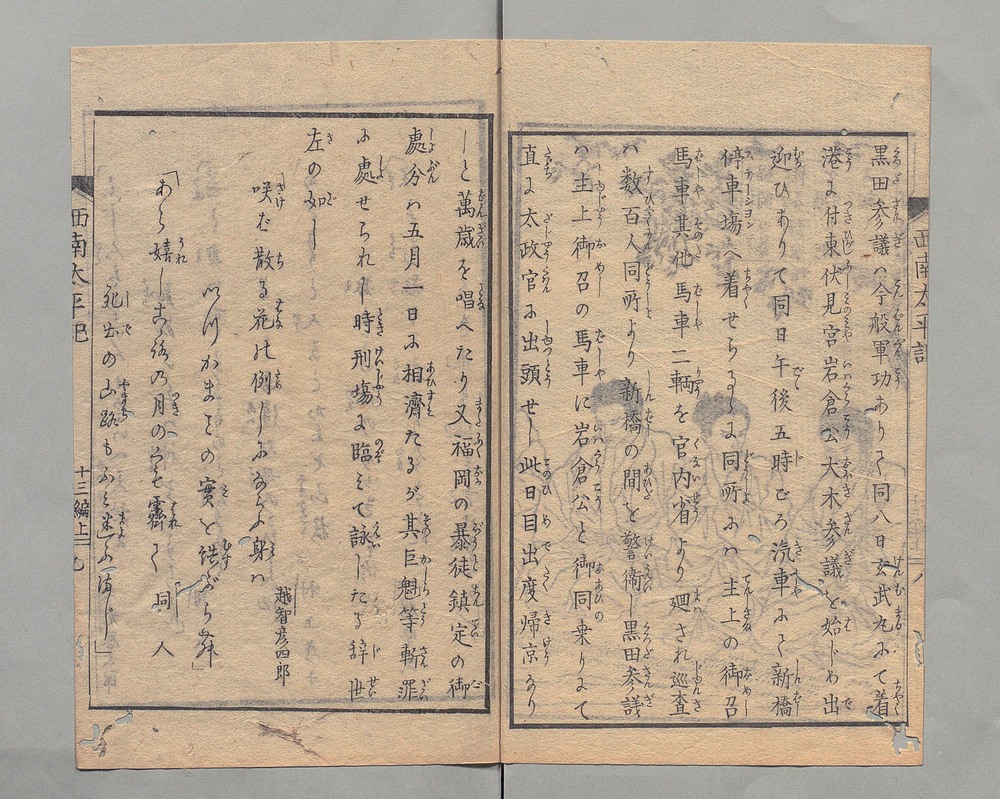 黒田参議ハ今般軍功ありて同八日玄武丸にて着
港に付東伏見宮岩倉公大木参議を始じめ出
迎ひありて同日午後五時ごろ汽車にて新橋
停車場へ着せらるゝに同所にハ主上の御召
馬車其他馬車二輌を宮内省より廻され巡査
ハ数百人同所より新橋の間を警衛し黒田参議
ハ主上御召の馬車に岩倉公と御同乗りにて
直に太政官に出頭せし此日目出度帰京なり
しと萬歳を唱へたり又福岡の暴徒鎮定の御
處分ハ五月一日に相濟たるが其巨魁等斬罪
に處せられし時刑場に臨みて詠じたる辞世
左の如し
越智彦四郎
「咲ば散る花の例しにならふ身ハ
いつかまことの實を結ぶら舞」
仝人
「あら嬉しこゝろの月のくも霽て
死出の山路もふみ迷ふまじ」
西南太平記
十三編上
九
西南太平記